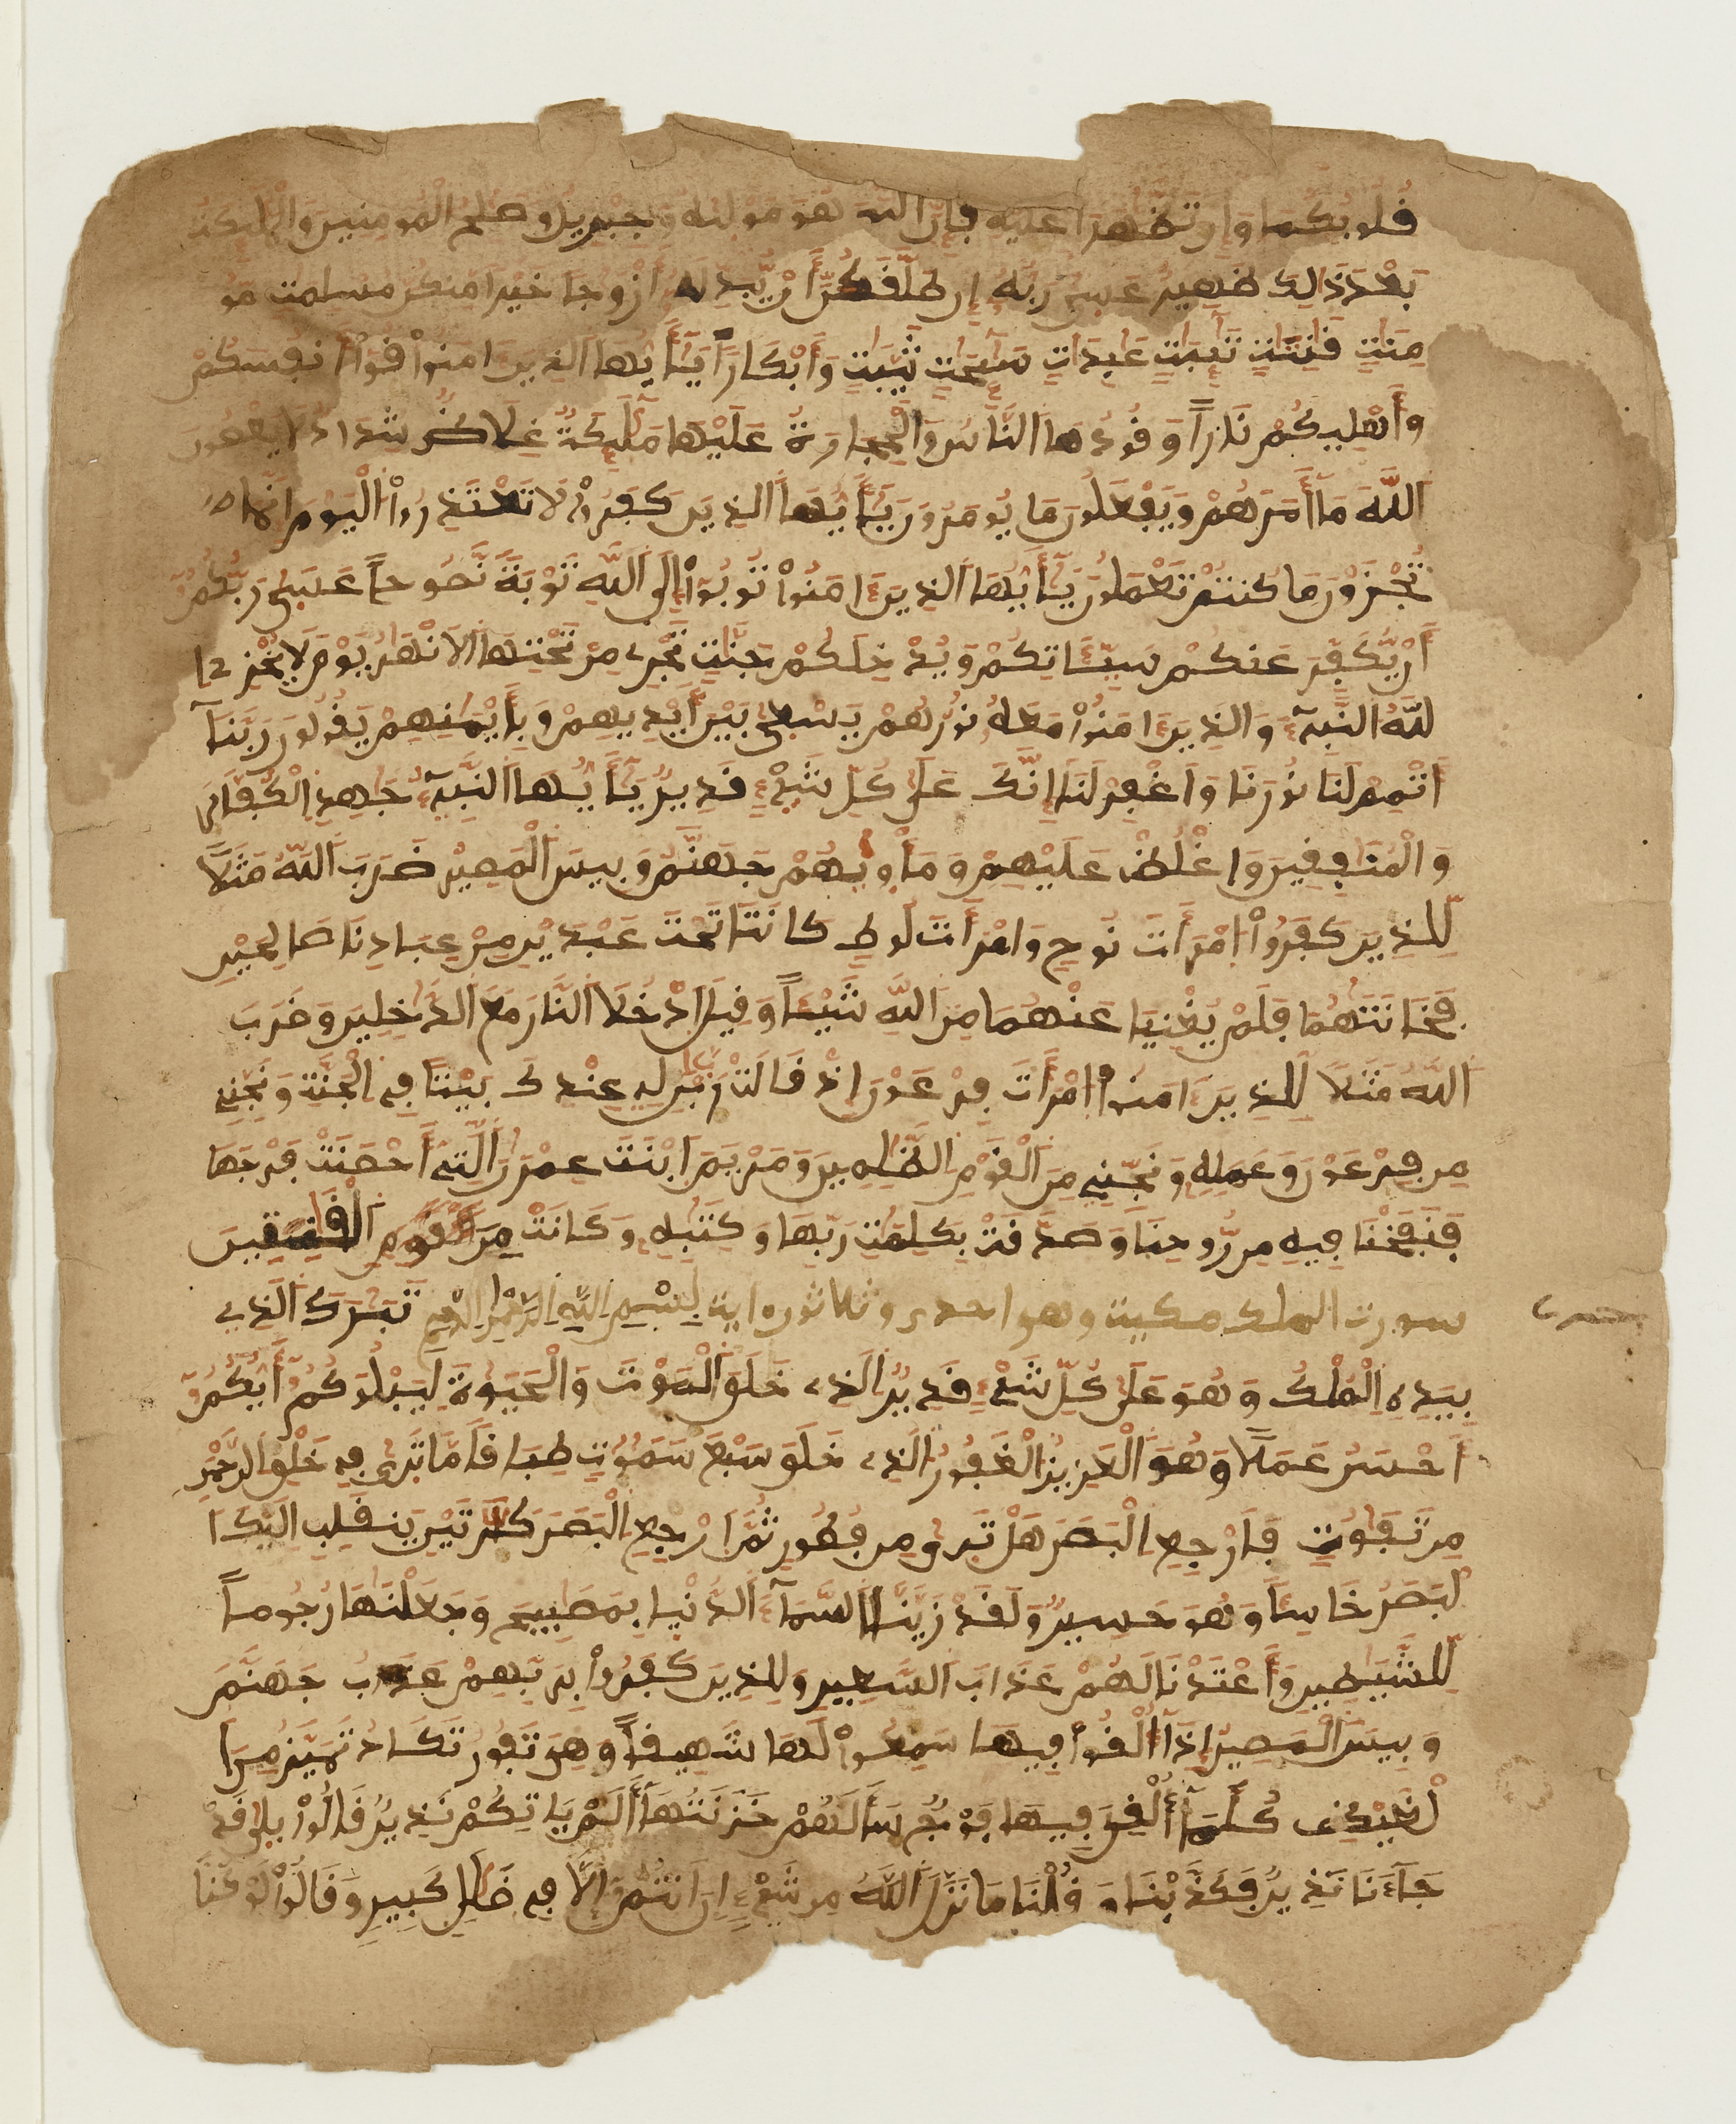 قلوبكما وإن تظهرا عليه فإن الله هو موليه وجبريل وصلح المومنين والمليكة
بعد ذلك ظهير عسى ربه إن طلقكن أن يبدله أزوجا خيرا منكن مسلمت مو
منت قنتت تيبت عبدات سيحت ثيبت وأبكارا يأيها الذين ءامنوا قوا أنفسكم
وأهليكم نارا وقودها الناس والحجارة عليها مليكة غلاظ شداد لا يعصون
الله ما أمرهم ويفعلون ما يومرون يأيها الذين كفروا لا تعتذروا اليوم إنما
تجزون ما كنتم تعملون يأيها الذين ءامنوا توبوا إلى الله توبة نصوحا عسى ربكم
أن يكفر عنكم سيئاتكم ويدخلكم جنت تجري من تحتها الانهر يوم لا يخزي ا
لله النبيء والذين ءامنوا معه نورهم يسعى بين أيديهم وبأيمنهم يقولون ربنا
أتمم لنا نورنا واغفر لنا إنك على كل شيء قدير يأيها النبيء جهد الكفار
والمنفقين واغلظ عليهم ومأويهم جهنم وبيس المصير ضرب الله مثلا
للذين كفروا امرأت نوح وامرأت لوط كانتا تحت عبدين من عبادنا صالحين
فخانتهما فلم يغنيا عنهما من الله شيئا وقيل ادخلا النار مع الدخلين وضرب
الله مثلا للذين ءامنوا امرأت فرعون إذ قالت رب ابن لي عندك بيتا في الجنة ونجني
من فرعون وعمله ونجني من القوم الظلمين ومريم ابنت عمرن التي أحصنت فرجها
فنفخنا فيه من روحنا وصدقت بكلمت ربها وكتبه وكانت من القوم الفسقين
سورت الملك مكية وهو احدى وثلاثون اية بسم الله الرحمن الرحيم تبرك الذي
بيده الملك وهو على كل شيء قدير الذي خلق الموت والحيوة ليبلوكم أيكم
أحسن عملا وهو العزيز الغفور الذي خلق سبع سموت طباقا ما ترى في خلق الرحمن
من تفوت فارجع البصر هل ترى من فطور ثم ارجع البصر كرتين ينقلب اليك ا
لبصر خاسئا وهو حسير ولقد زينا السماء الدنيا بمصبيح وجعلنها رجوما
للشيطين وأعتدنا لهم عذاب السعير وللذين كفروا بربهم عذاب جهنم
وبيس المصير إذا ألقوا فيها سمعوا لها شهيقا وهي تفور تكاد تميز من ا
لغيظ كلما ألقي فيها فوج سألهم خزنتها ألم ياتكم نذير قالوا بلى قد
جاءنا نذير فكذبنا وقلنا ما نزل الله من شيء إن أنتم إلا في ضلل كبير وقالوا لو كنا